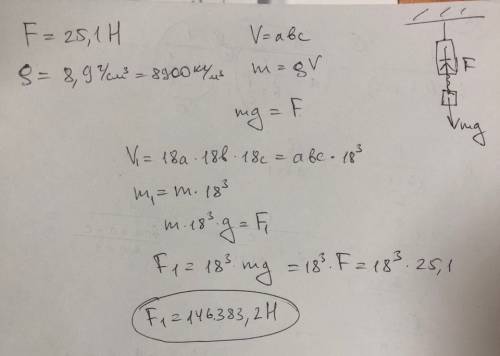 F = 25,1 H
V = abc
ρ = 8,9 г/см³ = 8900 кг/м³
m = ρV
mg = F
V₁ = 18a · 18b · 18c = abc · 18³
m₁ = m · 18³
m · 18³ · g = F₁
F₁ = 18³ · mg = 18³ · F = 18³ · 25,1
F₁ = 146383,2 H
F
mg